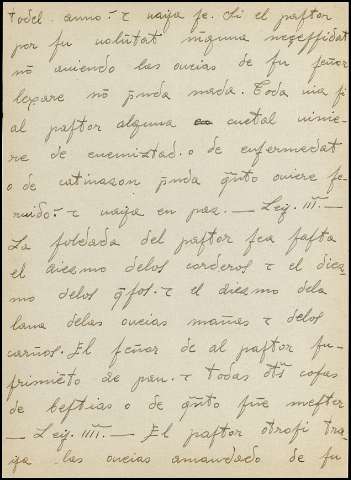 todel . anno: τ vaya se. Si el pastor
por su volũtat niguna neçessidat
nõ aviendo las oveias de su señor
lexare nõ p̃nda nada. Toda via si
al pastor alguna cuetal vinie-
re de enemiztad. o de enfermedat
o de cativason p̃nda q̃nto oviere se-
ruido: τ vaya en paz. — Ley. III. —
La soldada del pastor sea fasta
el diezmo delos corderos τ el diez-
mo delos q̃sos. τ el diezmo dela
lana delas oveias mañas τ delos
carños. El señor de al pastor su-
primiẽto de pan. τ todas ot̃s cosas
de bestias o de q̃nto fue mester
— Ley. IIII. — El pastor otrosi tra-
ya las oveias amandado de su